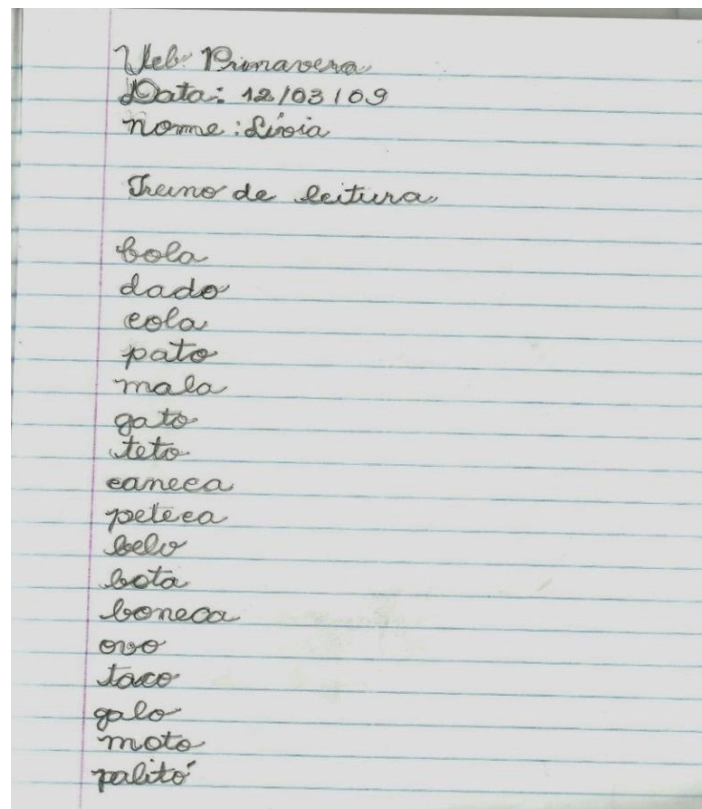 Ueb: Primavera
Data: 12/03/09
nome: Lívia
Treino de leitura
bola
dado
cola
pato
mala
gato
teto
caneca
peteca
belo
bota
boneca
ovo
taco
galo
moto
palitó